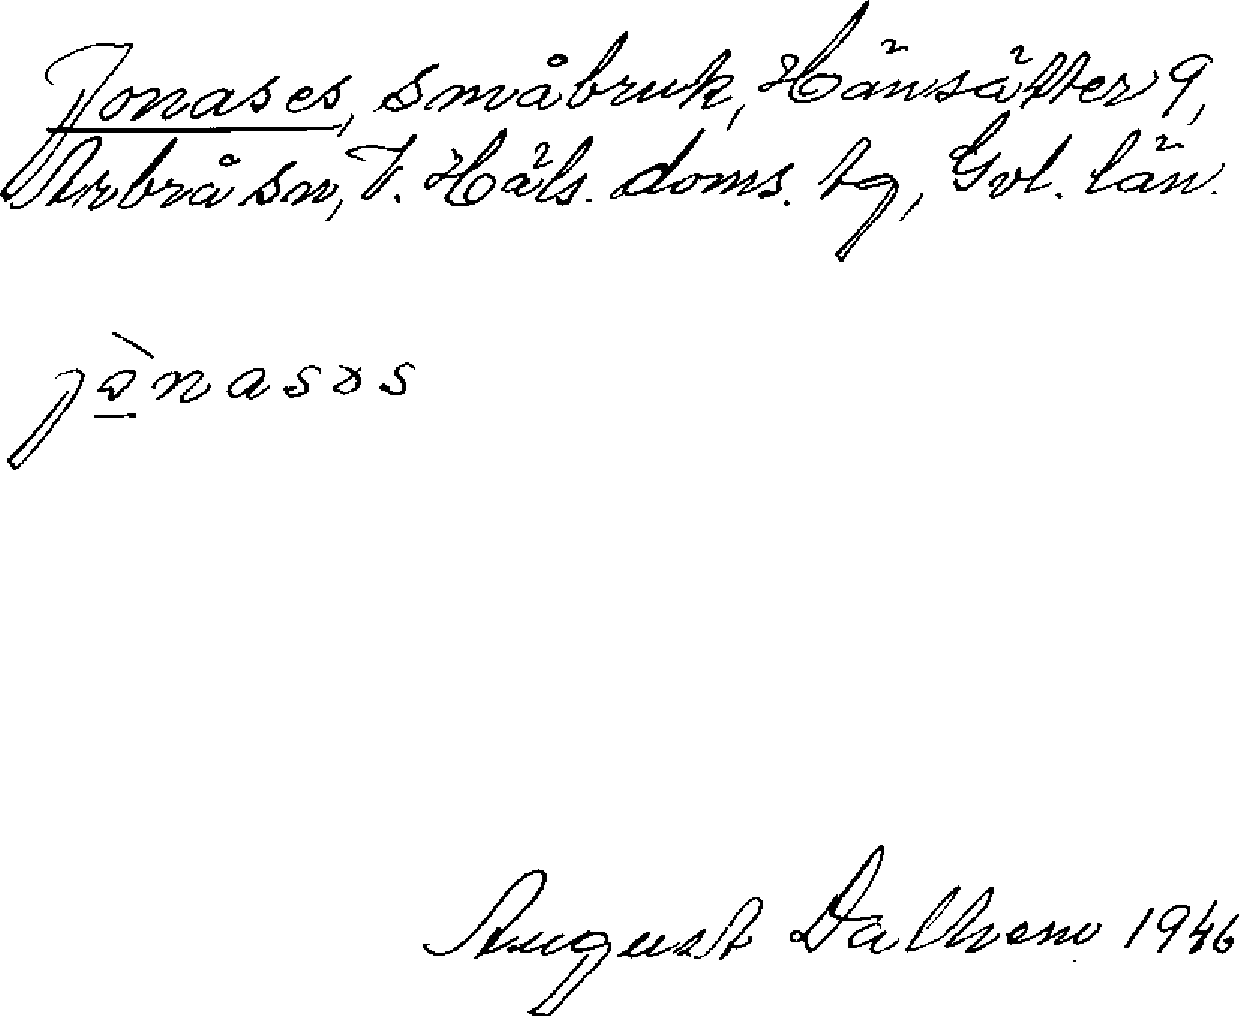 Jonases, småbruk, Hänsätter 9,
Arbrå sn, V. Häls. doms. tg, Gvl. län.
jònasɘs
August Dalhem 1946